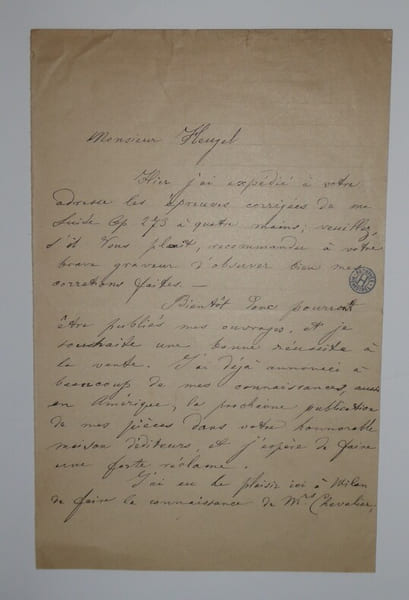 Monsieur Heugel
Hier j'ai expédié à votre
adresse les épreuves corrigées de ma
Suite Op 273 à quatre mains; veuillez,
s'il Vous plaît, recommander à votre
brave graveur d'observer bien mes
corretions faites. —
Bientôt donc pourront
être publiés mes ouvrages, et je
souhaite une bonne réussite à
la vente. J'ai déjà annoncé à
beaucoup de mes connaissances, aussi
en Amérique, la prochaine publication
de mes pièces dans votre honnorable
maison d'éditeurs, et j'espère de faire
une forte réclame.
J'ai eu le plaisir ici à Milan
de faire la connaissance de Mrs Chevalier,